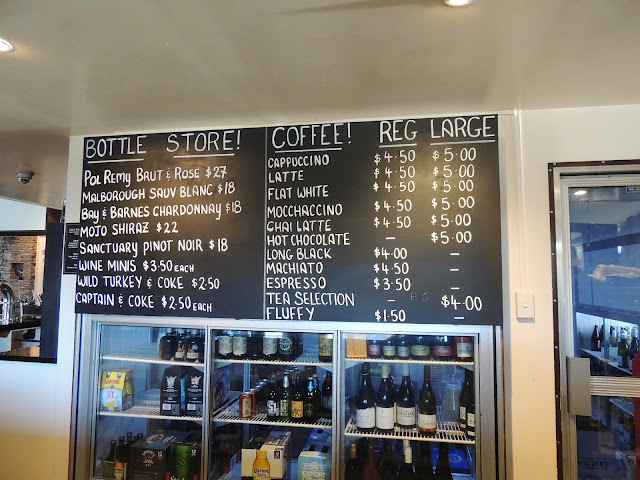 BOTTLE STORE!
POL REMY BRUT & ROSE $27
MALBOROUGH SAUV BLANC $18
BAY & BARNES CHARDONNAY $18
MOJO SHIRAZ $22
SANCTUARY PINOT NOIR $18
WINE MINIS $3.50 EACH
WILD TURKEY & COKE $2.50
CAPTAIN & COKE $2.50 EACH
COFFEE! REG LARGE
CAPPUCCINO $4.50 $5.00
LATTE $4.50 $5.00
FLAT WHITE $4.50 $5.00
MOCCHACCINO $4.50 $5.00
CHAI LATTE $4.50 $5.00
HOT CHOCOLATE – $5.00
LONG BLACK $4.00 –
MACHIATO $4.50 –
ESPRESSO $3.50 –
TEA SELECTION – $4.00
FLUFFY $1.50 –